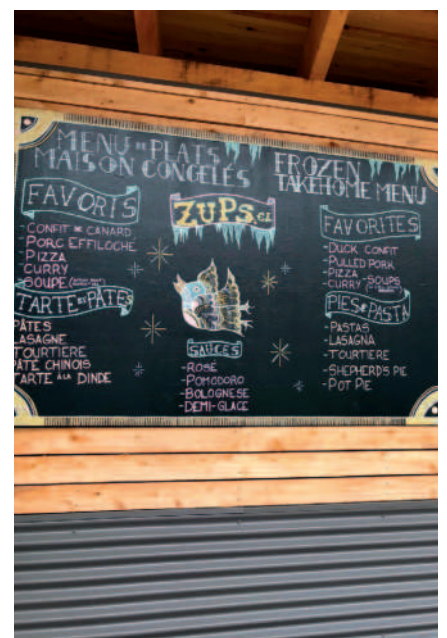 MENU DE PLATS
MAISON CONGELÉS
FAVORIS
-CONFIT DE CANARD
-PORC EFFILOCHE
-PIZZA
-CURRY
-SOUPE
TARTE ET PÂTES
PÂTES
LASAGNE
TOURTIERE
PÂTÉ CHINOIS
TARTE À LA DINDE
ZUPS.CA
SAUCES
-ROSÉ
-POMODORO
-BOLOGNESE
-DEMI-GLACE
FROZEN
TAKEHOME MENU
FAVORITES
-DUCK CONFIT
-PULLED PORK
-PIZZA
-CURRY -SOUPS
PIES & PASTA
-PASTAS
-LASAGNA
-TOURTIERE
-SHEPHERD'S PIE
-POT PIE